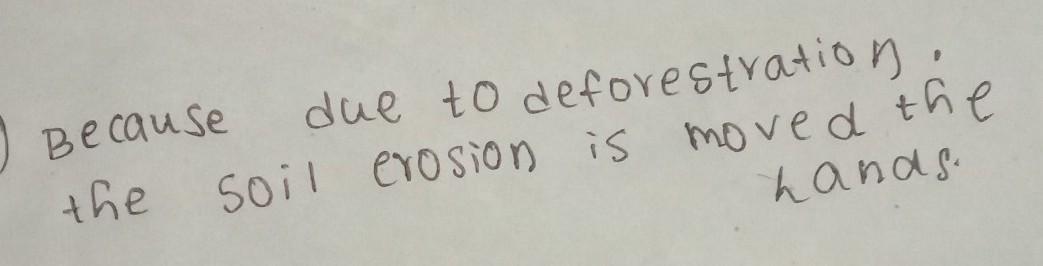 ) Because due to deforestration.
the soil erosion is moved the
hands.